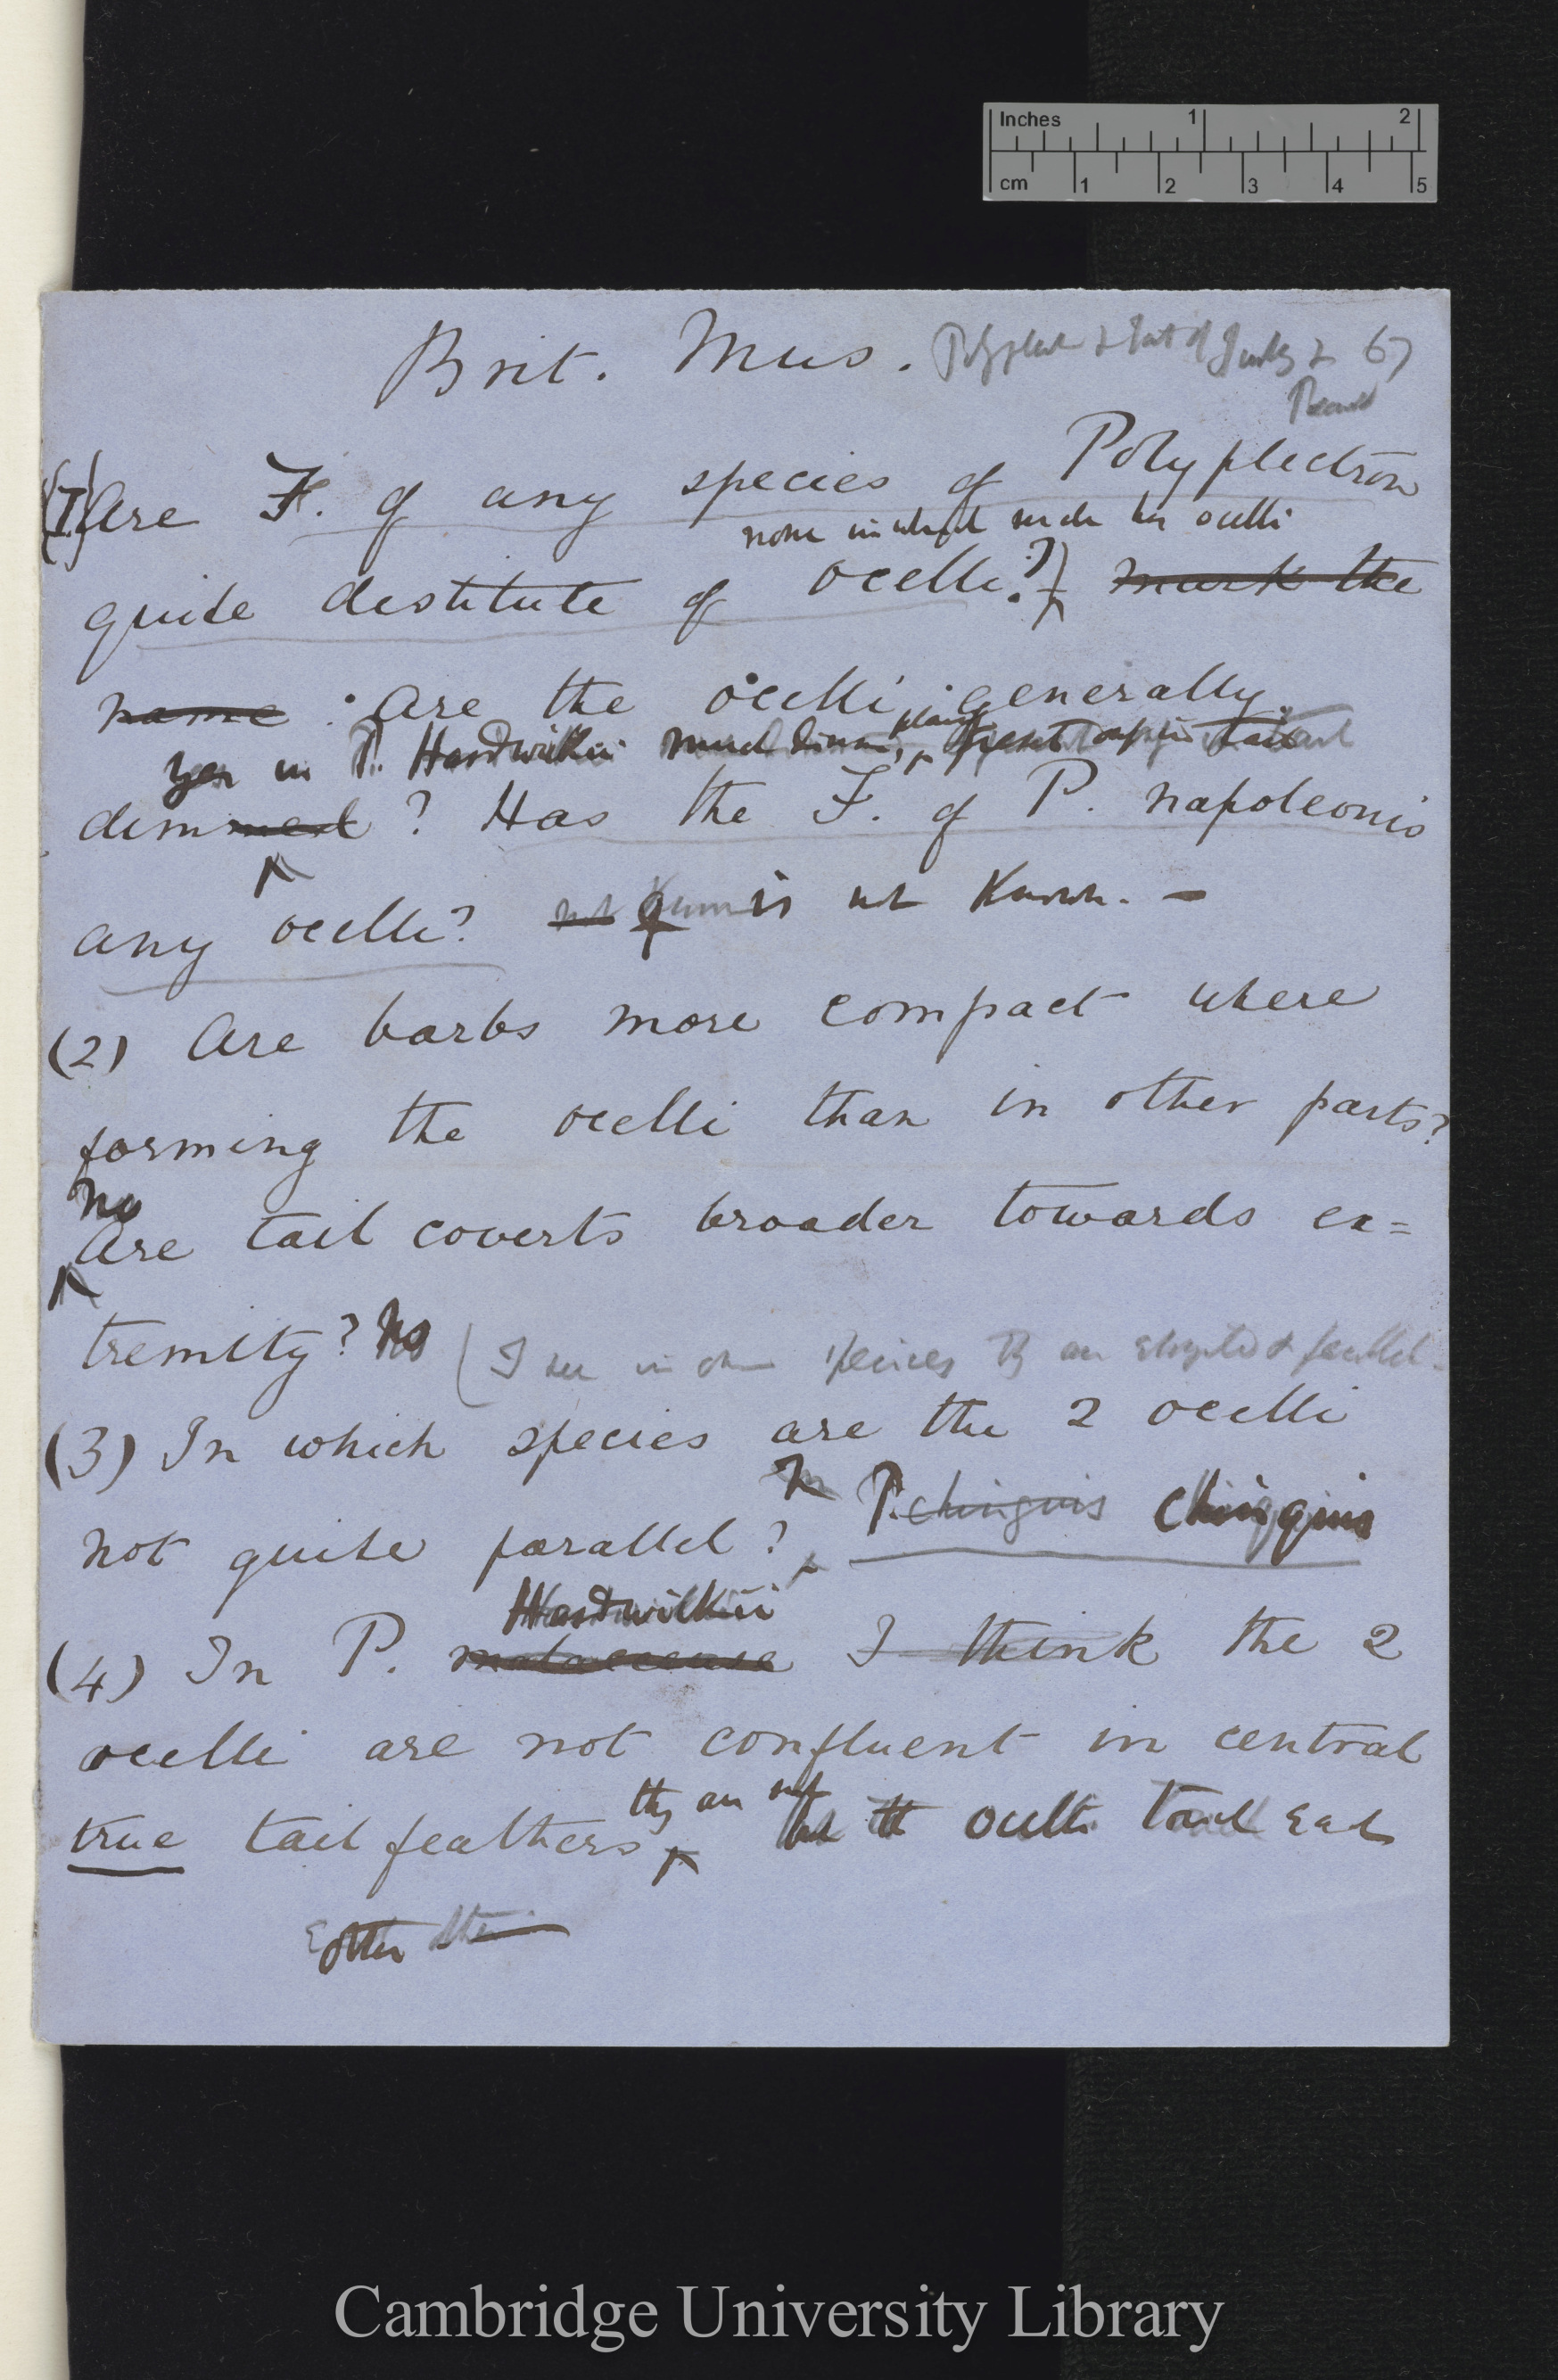 Inches 1 2
cm 1 2 3 4 5
Brit. Mus.
67
(1) Are F. of any species of Polyplectron
none in which male has ocelli
quite destitute of ocelli?) mark the
name : Are the ocelli generally
yes in P. Hardwickii much dimmer, plainer
dimmed? Has the F. of P. napoleonis
any ocelli? not ♀ is not known. —
(2) Are barbs more compact where
forming the ocelli than in other parts?
No
Are tail coverts broader towards ex=
tremity? No (I see in one species they are
(3) In which species are the 2 ocelli
In P. chinquis chinquis
not quite parallel?
Hardwickii
(4) In P. malaccense I think the 2
ocelli are not confluent in central
they are not
true tail feathers but the ocelli touch each
other
Cambridge University Library